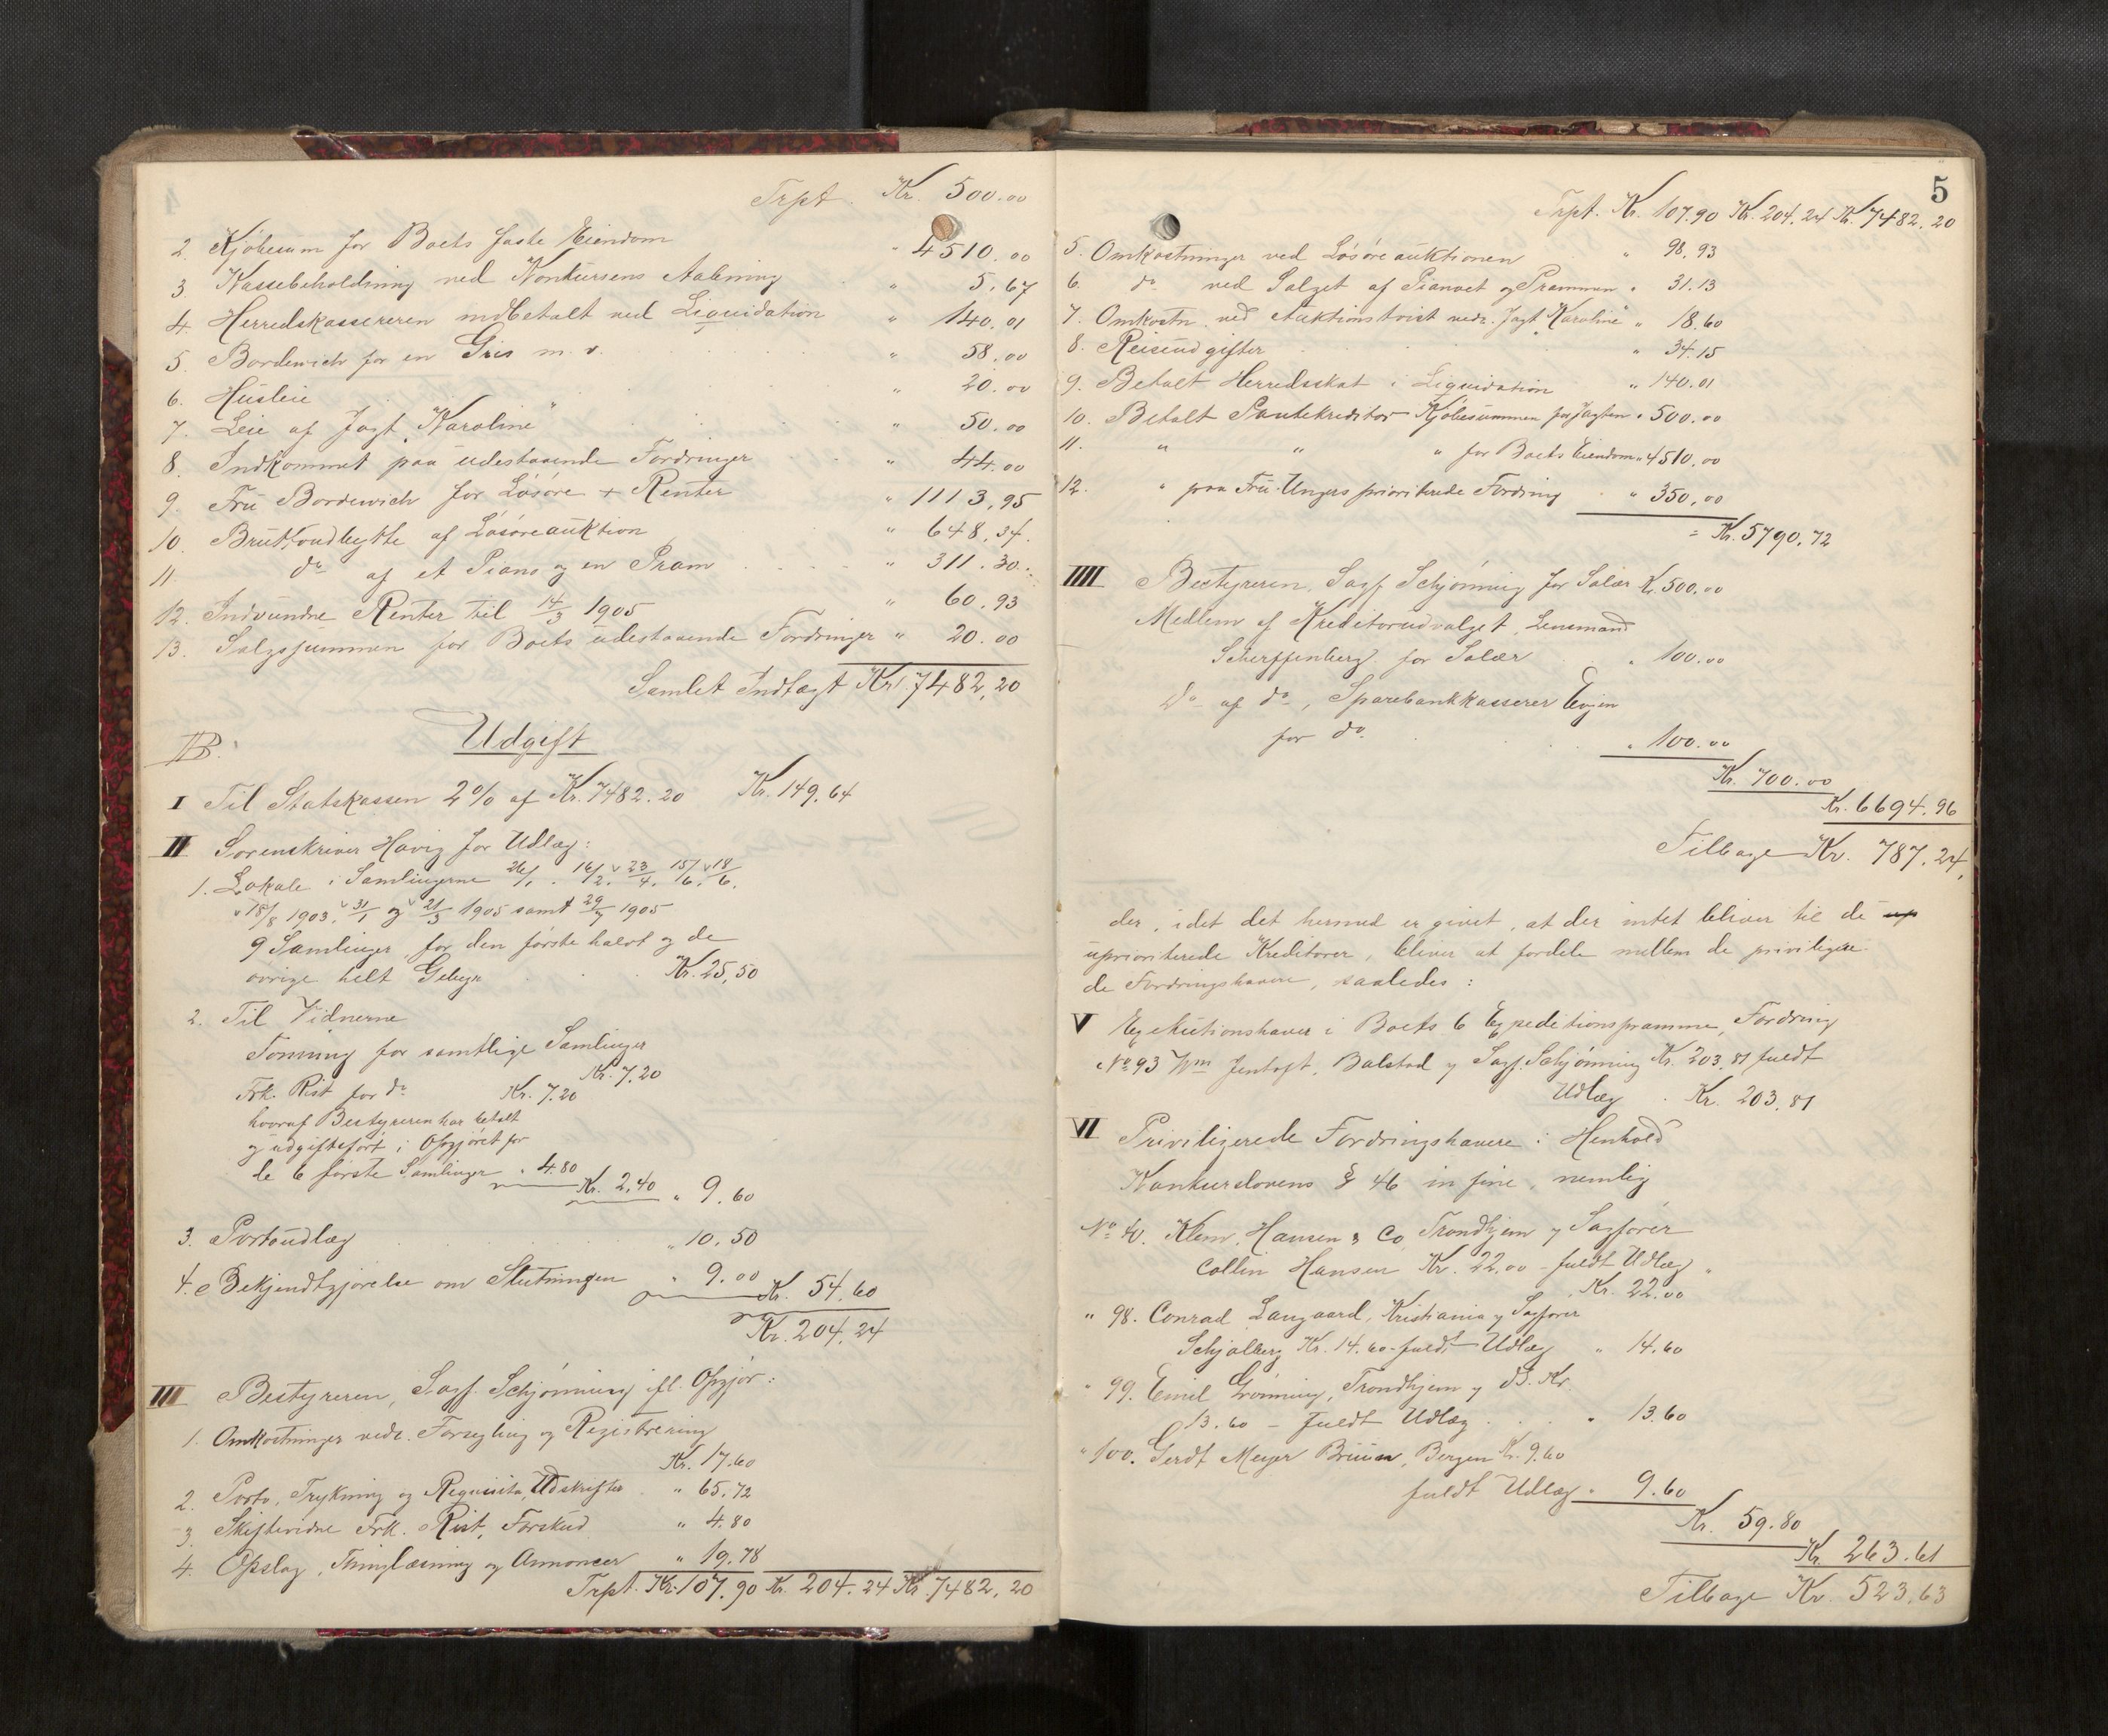 Trpt. Kr. 500.00
2. Kjøbesum for Boets faste Eiendom " 4510.00
3. Kassebeholdning ved Konkursens Aabning " 5.67
4. Herredskassereren indbetalt ved Liquidation " 140.01
5. Bordewich for en Gris m. v. " 58.00
6. Husleie " 20.00
7. Leie af Jagt "Karoline" " 50.00
8. Indkommet paa udestaaende Fordringer " 44.00
9. Fru Bordewich for Løsøre + Renter " 1113,95
10. Bruttoudbytte af Løsøreauktion " 648,34.
11. do af et Piano og en Pram " 311.30.
12. Indvundne Renter til 14/3 1905 " 60,93
13. Salgssummen for Boets udestaaende Fordringer " 20.00
Samlet Indtægt Kr. 7482,20
B. Udgift
I Til Statskassen 2% af Kr. 7482.20 Kr. 149.64
II Sorenskriver Havig for Udlæg:
1. Lokale i Samlingerne 26/1. 16/2. 23/4. 15/6. 18/6.
18/8 1903, 31/1 og 21/3 1905 samt 29/7 1905
9 Samlinger, for den første halvt og de
øvrige helt Gebyr Kr. 25,50
2. Til Vidnerne
Tønning for samtlige Samlinger
Kr. 7.20
Frk. Rist for do Kr. 7.20
hvoraf Bestyreren har betalt
og udgiftsført i Opgjøret for
de 6 første Samlinger " 4.80
Kr. 2,40 " 9.60
3. Portoudlæg " 10.50
4. Bekjendtgjørelse om Slutningen " 9.00 Kr. 54.60
Kr. 204.24
III Bestyreren, Sagf. Schjønning ifl. Opgjør:
1. Omkostninger vedr. Forsegling og Registrering
Kr. 17.60
2. Porto, Trykning og Requisita, Udskrifter " 65,72
3. Skiftevidne Frk. Rist, Forskud " 4.80
4. Opslag, Thinglæsning og Annoncer " 19.78
Trpt. Kr. 107.90 Kr. 204.24 Kr. 7482,20
5
Trpt. Kr. 107.90 Kr. 204.24 Kr. 7482.20
5. Omkostninger ved Løsøreauktionen " 98,93
6. do ved Salget af Pianoet og Prammen " 31.13
7. Omkostn. ved Auktionstvist vedr. Jagt "Karoline" " 18.60
8. Reiseudgifter " 34.15
9. Betalt Herredsskat i Liquidation " 140.01
10. Betalt Pantekreditor Kjøbesummen for Jagten " 500.00
11. " " " for Boets Eiendom " 4510.00
12. " paa Fru Ungers prioriterede Fordring " 350,00
= Kr. 5790,72
IIII Bestyreren, Sagf. Schjønning for Salær Kr. 500.00
Medlem af Kreditorudvalget, Lensmand
Scherffenberg for Salær " 100.00
Do af do, Sparebankkasserer Evjen
for do " 100.00
Kr. 700.00
Kr. 6694.96
Tilbage Kr. 787.24,
der, idet det hermed er givet, at der intet bliver til de up
uprioriterede Kreditorer, bliver at fordele mellem de privilegere
de Fordringshavere, saaledes:
V Exekutionshaver i Boets 6 Expeditionspramme, Fordring
No 93 Wm Jentoft, Balstad v Sagf. Schjønning Kr. 203.81 fuldt
Udlæg Kr. 203.81
VI Priviligerede Fordringshavere i Henhold
Konkurslovens § 46 in fine, nemlig
No 40. Klem, Hansen & Co Trondhjem v Sagfører
Collin Hansen Kr. 22.00 - fuldt Udlæg
Kr. 22.00
" 98. Conrad Langaard, Kristiania v Sagfører
Schjølberg Kr. 14.60 - fuldt Udlæg " 14.60
" 99. Emil Grønning, Trondhjem v dS. Kr.
13.60 - fuldt Udlæg " 13.60
" 100. Gerdt Meyer Bruun, Bergen Kr. 9.60
fuldt Udlæg " 9.60
Kr. 59.80
Kr. 263.61
Tilbage Kr. 523,63